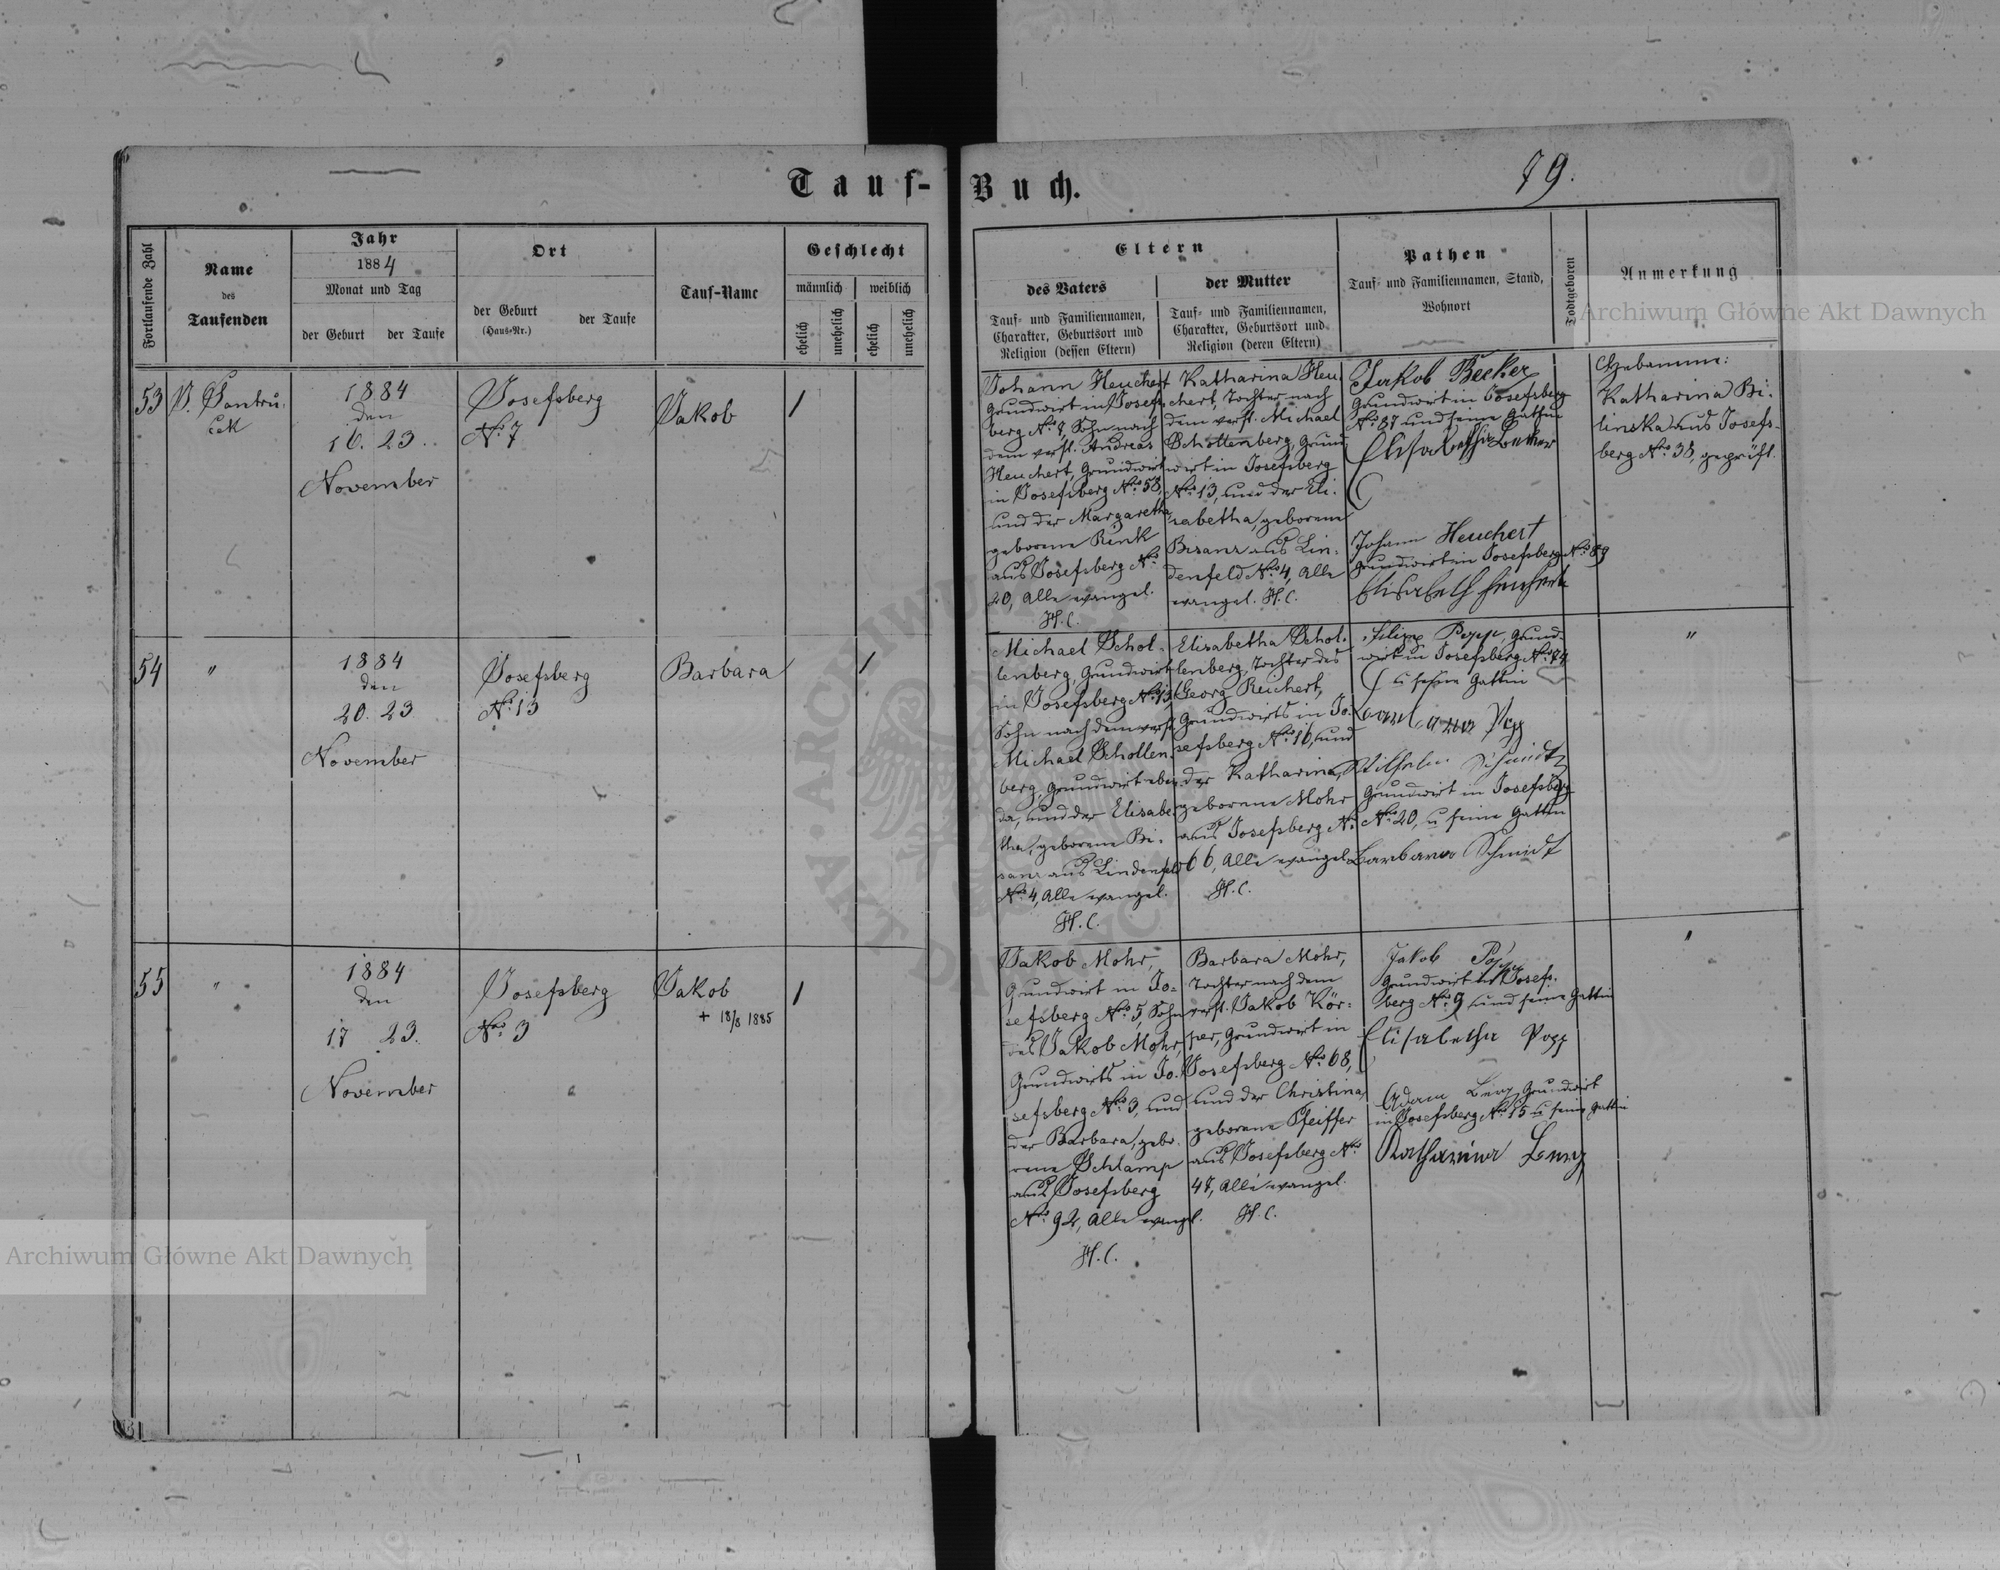 Tauf-Buch.
79.
Fortlaufende Zahl
Name
des
Taufenden
Jahr
1884
Monat und Tag
der Geburt
der Taufe
Ort
der Geburt
(Haus-Nr.)
der Taufe
Tauf-Name
Geschlecht
männlich
weiblich
ehelich
unehelich
ehelich
unehelich
Eltern
des Vaters
Tauf- und Familiennamen,
Charakter, Geburtsort und
Religion (dessen Eltern)
der Mutter
Tauf- und Familiennamen,
Charakter, Geburtsort und
Religion (deren Eltern)
Pathen
Tauf- und Familiennamen, Stand,
Wohnort
Todtgeboren
Anmerkung
53
1884
den
16. 23.
November
Josefsberg
No. 7
Jakob
1
Johann Heuchert
Grundwirt in Josefs-
berg No. 7, Sohn nach
dem verst. Andreas
Heuchert, Grundwirt
in Josefsberg No. 58,
und der Margaretha,
geborene Rink
aus Josefsberg No.
20, Alle evangel.
H.C.
Katharina Heu-
chert, Tochter nach
dem verst. Michael
Schollenberg, Grund-
wirt in Josefsberg
No. 13, und der Eli-
sabetha, geborene
Bisanz aus Lin-
denfeld No. 4, Alle
evangel. H.C.
Jakob Becker
Grundwirt in Josefsberg
No. 87 und seine Gattin
Elisabetha Becker
Johann Heuchert
Grundwirt in Josefsberg No. 89
Elisabeth Heuchert
Hebamme:
Katharina Bi-
linska aus Josefs-
berg No. 38, geprüft.
54
"
1884
den
20. 23
November
Josefsberg
No. 13
Barbara
1
Michael Schol-
lenberg, Grundwirt
in Josefsberg No. 13,
Sohn nach dem verst.
Michael Schollen-
berg, Grundwirt eben-
da, und der Elisabe-
tha, geborene Bi-
sanz aus Lindenfeld
No. 4, Alle evangel.
H.C.
Elisabetha Schol-
lenberg, Tochter des
Georg Reichert,
Grundwirts in Jo-
sefsberg No. 16, und
der Katharina,
geborene Mohr
aus Josefsberg No.
66, Alle evangel.
H.C.
Filipp Popp, Grund-
wirt in Josefsberg No. 74
u seine Gattin
Popp
Wilhelm Schmidt
Grundwirt in Josefsberg
No. 20, u seine Gattin
Barbara Schmidt
"
55
"
1884
den
17 23.
November
Josefsberg
No. 3
Jakob
+ 18/8 1885
1
Jakob Mohr,
Grundwirt in Jo-
sefsberg No. 5, Sohn
des Jakob Mohr,
Grundwirts in Jo-
sefsberg No. 3, und
der Barbara, gebo-
rene Schlamp
aus Josefsberg
No. 92, Alle evangl.
H.C.
Barbara Mohr,
Tochter nach dem
verst. Jakob Kör-
per, Grundwirt in
Josefsberg No. 68,
und der Christina,
geborene Pfeiffer
aus Josefsberg No.
47, Alle evangel.
H.C.
Jakob Popp
Grundwirt in Josefs-
berg No. 9 und seine Gattin
Elisabetha Popp
Adam Berg, Grundwirt
in Josefsberg No. 15 u seine Gattin
Katharina Berg
"
Archiwum Główne Akt Dawnych
Archiwum Główne Akt Dawnych